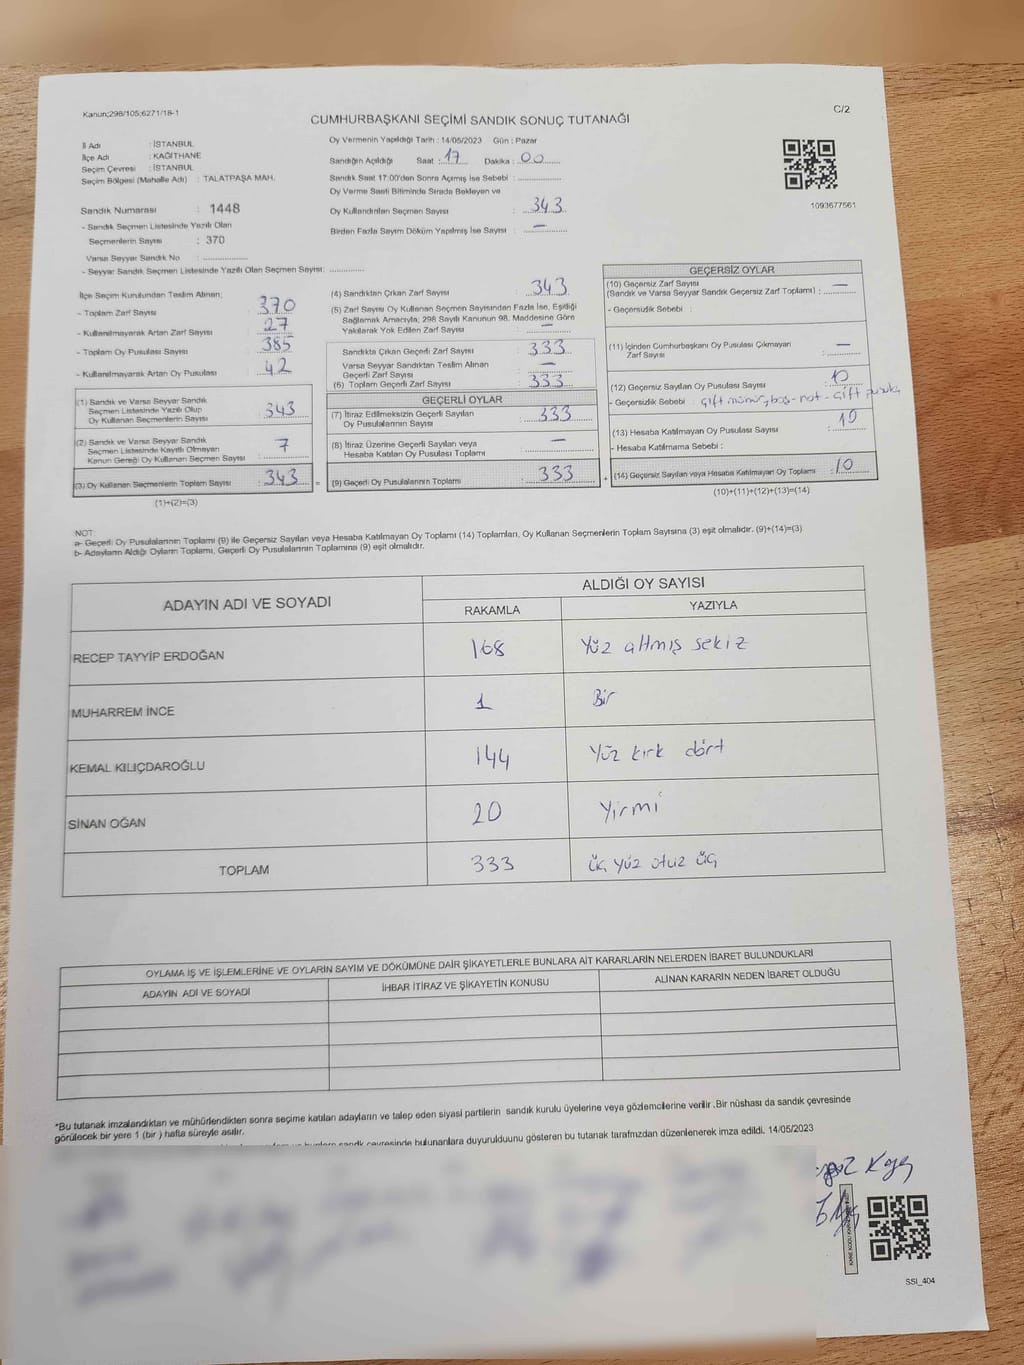 Kanun;298/105;6271/18-1
C/2
CUMHURBAŞKANI SEÇİMİ SANDIK SONUÇ TUTANAĞI
İl Adı : İSTANBUL
İlçe Adı : KAĞITHANE
Seçim Çevresi : İSTANBUL
Seçim Bölgesi (Mahalle Adı) : TALATPAŞA MAH.
Sandık Numarası : 1448
- Sandık Seçmen Listesinde Yazılı Olan
Seçmenlerin Sayısı : 370
Varsa Seyyar Sandık No : ................
- Seyyar Sandık Seçmen Listesinde Yazılı Olan Seçmen Sayısı: ............
Oy Vermenin Yapıldığı Tarih : 14/05/2023 Gün : Pazar
Sandığın Açıldığı Saat : 17 Dakika : 00
Sandık Saat 17:00'den Sonra Açımış İse Sebebi : ................
Oy Verme Saati Bitiminde Sırada Bekleyen ve
Oy Kullandırılan Seçmen Sayısı : 343
Birden Fazla Sayım Döküm Yapılmış İse Sayısı : —
1093677561
İlçe Seçim Kurulundan Teslim Alınan;
- Toplam Zarf Sayısı : 370
- Kullanılmayarak Artan Zarf Sayısı : 27
- Toplam Oy Pusulası Sayısı : 385
- Kullanılmayarak Artan Oy Pusulası : 42
(1) Sandık ve Varsa Seyyar Sandık
Seçmen Listesinde Yazılı Olup
Oy Kullanan Seçmenlerin Sayısı : 343
(2) Sandık ve Varsa Seyyar Sandık
Seçmen Listesinde Kayıtlı Olmayan
Kanun Gereği Oy Kullanan Seçmen Sayısı : 7
(3) Oy Kullanan Seçmenlerin Toplam Sayısı : 343
(1)+(2)=(3)
(4) Sandıktan Çıkan Zarf Sayısı : 343
(5) Zarf Sayısı Oy Kullanan Seçmen Sayısından Fazla İse, Eşitliği
Sağlamak Amacıyla; 298 Sayılı Kanunun 98. Maddesine Göre
Yakılarak Yok Edilen Zarf Sayısı : —
Sandıkta Çıkan Geçerli Zarf Sayısı : 333
Varsa Seyyar Sandıktan Teslim Alınan
Geçerli Zarf Sayısı : —
(6) Toplam Geçerli Zarf Sayısı : 333
GEÇERLİ OYLAR
(7) İtiraz Edilmeksizin Geçerli Sayılan
Oy Pusulalarının Sayısı : 333
(8) İtiraz Üzerine Geçerli Sayılan veya
Hesaba Katılan Oy Pusulası Toplamı : —
= (9) Geçerli Oy Pusulalarının Toplamı : 333
GEÇERSİZ OYLAR
(10) Geçersiz Zarf Sayısı
(Sandık ve Varsa Seyyar Sandık Geçersiz Zarf Toplamı) : —
- Geçersizlik Sebebi :
(11) İçinden Cumhurbaşkanı Oy Pusulası Çıkmayan
Zarf Sayısı : —
(12) Geçersiz Sayılan Oy Pusulası Sayısı : 10
- Geçersizlik Sebebi : çift mühür, boş - not - çift pusula
(13) Hesaba Katılmayan Oy Pusulası Sayısı : 10
- Hesaba Katılmama Sebebi :
+ (14) Geçersiz Sayılan veya Hesaba Katılmayan Oy Toplamı : 10
(10)+(11)+(12)+(13)=(14)
NOT:
a- Geçerli Oy Pusulalarının Toplamı (9) ile Geçersiz Sayılan veya Hesaba Katılmayan Oy Toplamı (14) Toplamları, Oy Kullanan Seçmenlerin Toplam Sayısına (3) eşit olmalıdır. (9)+(14)=(3)
b- Adayların Aldığı Oyların Toplamı, Geçerli Oy Pusulalarının Toplamına (9) eşit olmalıdır.
ADAYIN ADI VE SOYADI ALDIĞI OY SAYISI
RAKAMLA YAZIYLA
RECEP TAYYİP ERDOĞAN 168 Yüz altmış sekiz
MUHARREM İNCE 1 Bir
KEMAL KILIÇDAROĞLU 144 Yüz kırk dört
SİNAN OĞAN 20 Yirmi
TOPLAM 333 üç yüz otuz üç
OYLAMA İŞ VE İŞLEMLERİNE VE OYLARIN SAYIM VE DÖKÜMÜNE DAİR ŞİKAYETLERLE BUNLARA AİT KARARLARIN NELERDEN İBARET BULUNDUKLARI
ADAYIN ADI VE SOYADI İHBAR İTİRAZ VE ŞİKAYETİN KONUSU ALINAN KARARIN NEDEN İBARET OLDUĞU
*Bu tutanak imzalandıktan ve mühürlendikten sonra seçime katılan adayların ve talep eden siyasi partilerin sandık kurulu üyelerine veya gözlemcilerine verilir .Bir nüshası da sandık çevresinde
görülecek bir yere 1 (bir ) hafta süreyle asılır.
sandık çevresinde bulunanlara duyurulduunu gösteren bu tutanak tarafmzdan düzenlenerek imza edildi. 14/05/2023
SSİ_404